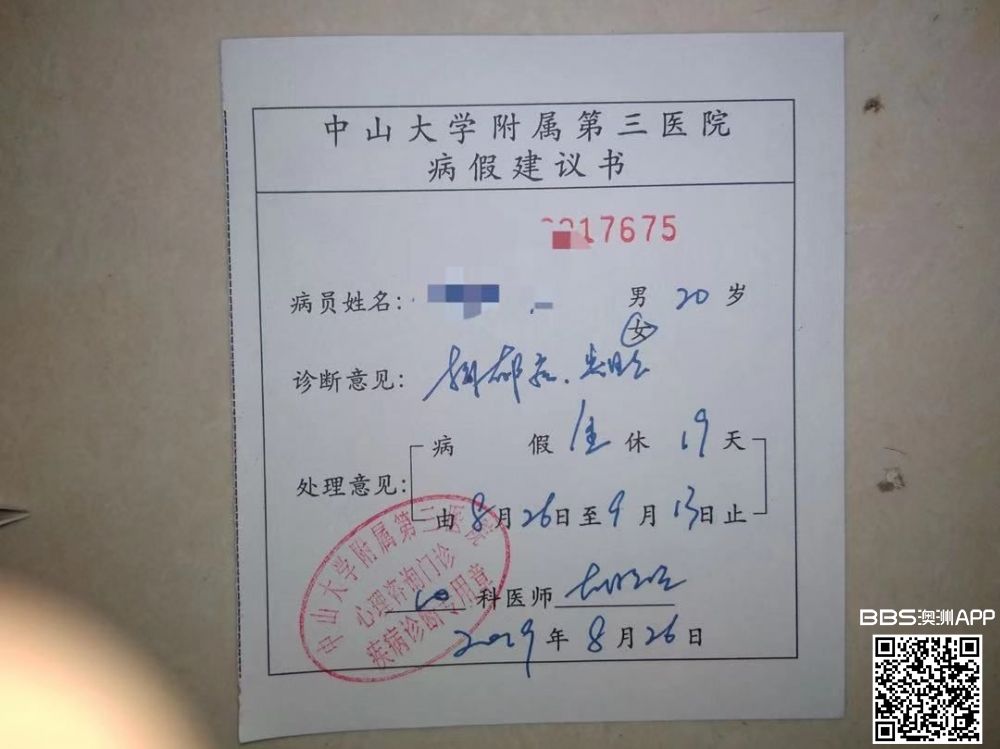 中山大学附属第三医院
病假建议书
17675
病员姓名: 男 20 岁
女
诊断意见: 抑郁症、
病 假 全 休 19 天
处理意见:
由 8 月 26 日 至 9 月 13 日 止
心 科医师
2019 年 8 月 26 日
中山大学附属第三医院
心理咨询门诊
疾病诊断专用章
BBS澳洲APP